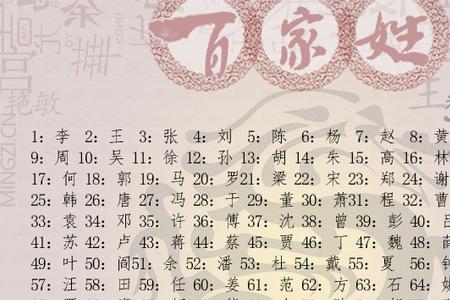 百家姓
艳敏
MINGZI.CN
1: 李 2: 王 3: 张 4: 刘 5: 陈 6: 杨 7: 赵 8: 黄
9: 周 10: 吴 11: 徐 12: 孙 13: 胡 14: 朱 15: 高 16: 林
17: 何 18: 郭 19: 马 20: 罗21: 梁 22: 宋 23: 郑 24: 谢
25: 韩 26: 唐 27: 冯 28: 于 29: 董 30: 萧31: 程 32: 曹
33: 袁 34: 邓 35: 许 36: 傅 37: 沈 38: 曾 39: 彭 40: 吕
41: 苏 42: 卢 43: 蒋 44: 蔡 45: 贾 46: 丁 47: 魏 48: 薛
49: 叶 50: 阎51: 余 52: 潘 53: 杜 54: 戴 55: 夏 56: 
57: 汪 58: 田 59: 任 60: 姜 61: 范 62: 方 63: 石 64: 姚